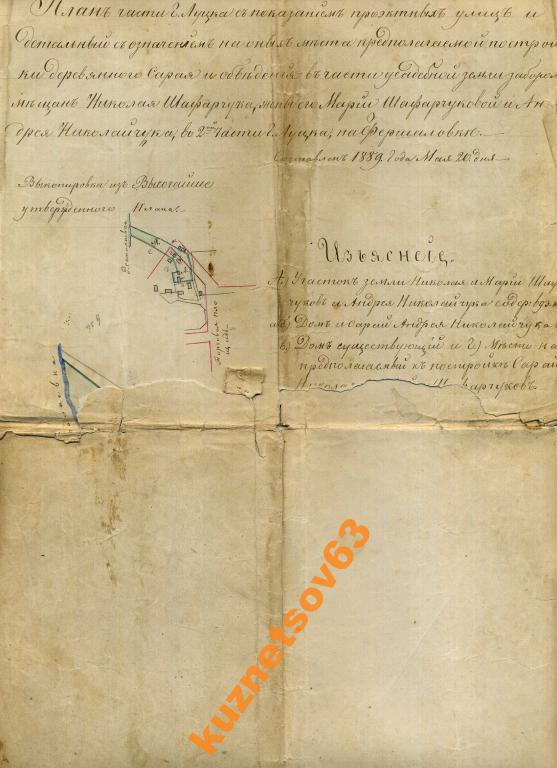 Планъ части Г. Луцка съ показаніемъ проэктныхъ улицъ и
детальный съ означеніемъ на оныхъ мѣста предполагаемой построй
ки деревяннаго Сарая и обведенія въ части усадебной земли заборомъ
мѣщанъ Николая Шафарчука, жены его Маріи Шафарчуковой и Ан
дрея Николайчука, во 2й части Г. Луцка, на
Составленъ 1889 Года Мая 20 дня
Выкопировка изъ Высочайше
утвержденнаго Плана
Изъясненіе.
А) Участокъ земли Николая и Маріи Шафар
чуковъ и Андрея Николайчука
Домъ и Сарай Андрея Николайчука
в) Домъ существующій и г) Мѣсто на
предполагаемый къ постройкѣ Сарай
Шафарчуковъ.
Торговая пло
щадь
kuznetsov63